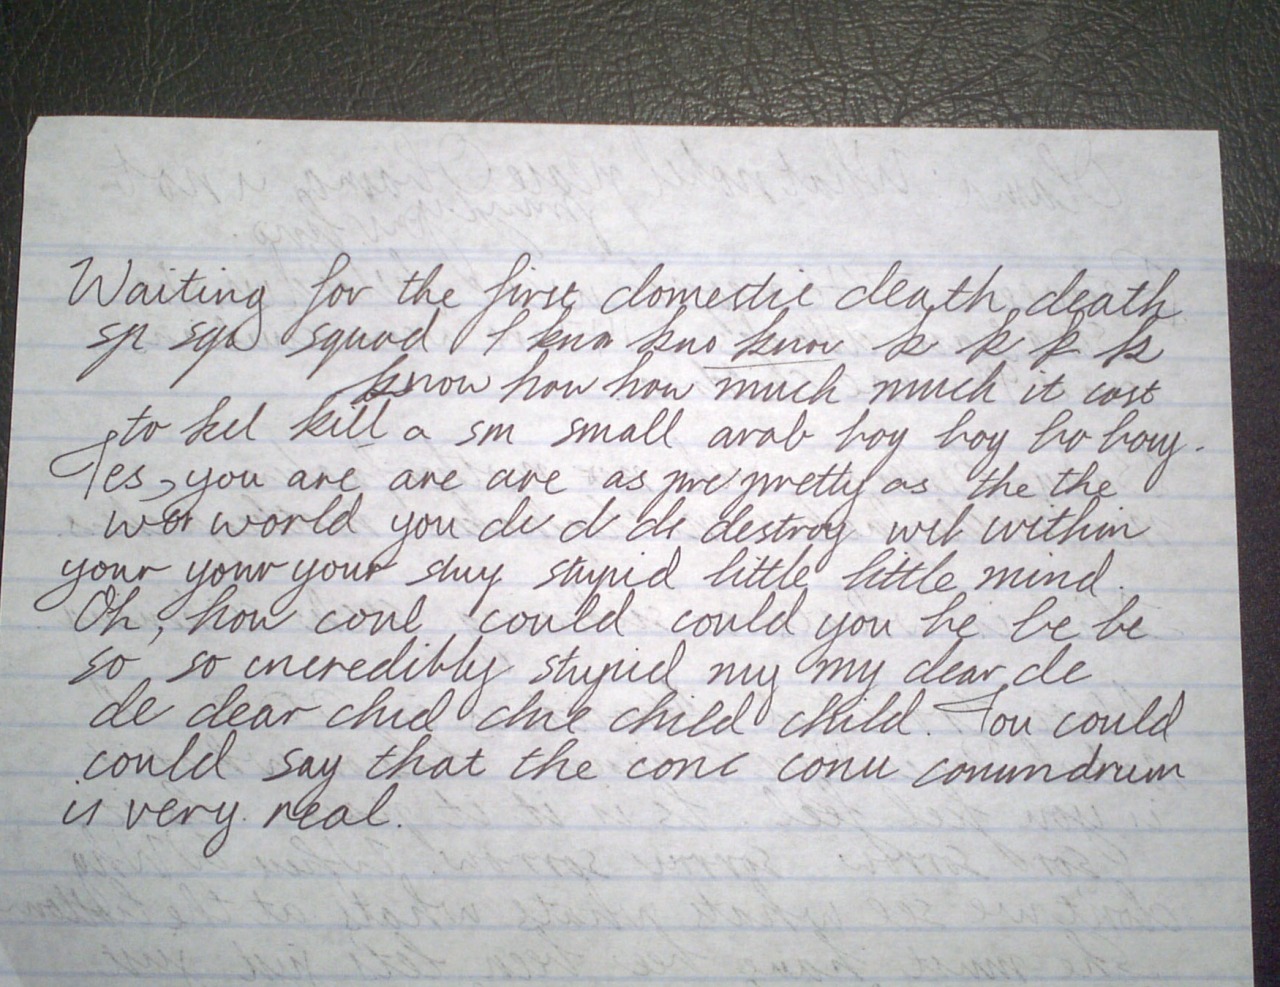 Waiting for the first domestic death death
sp sqa squad I kno kno know k k k k
know how how much much it cost
to kil kill a sm small arab boy boy bo boy.
Yes, you are are are as pre pretty as the the
wor world you de d de destroy wil within
your your your stuy stupid little little mind.
Oh, how coul could could you be be be
so so incredibly stupid my my dear de
de dear chid chil child child. You could
could say that the conc conu conundrum
is very real.